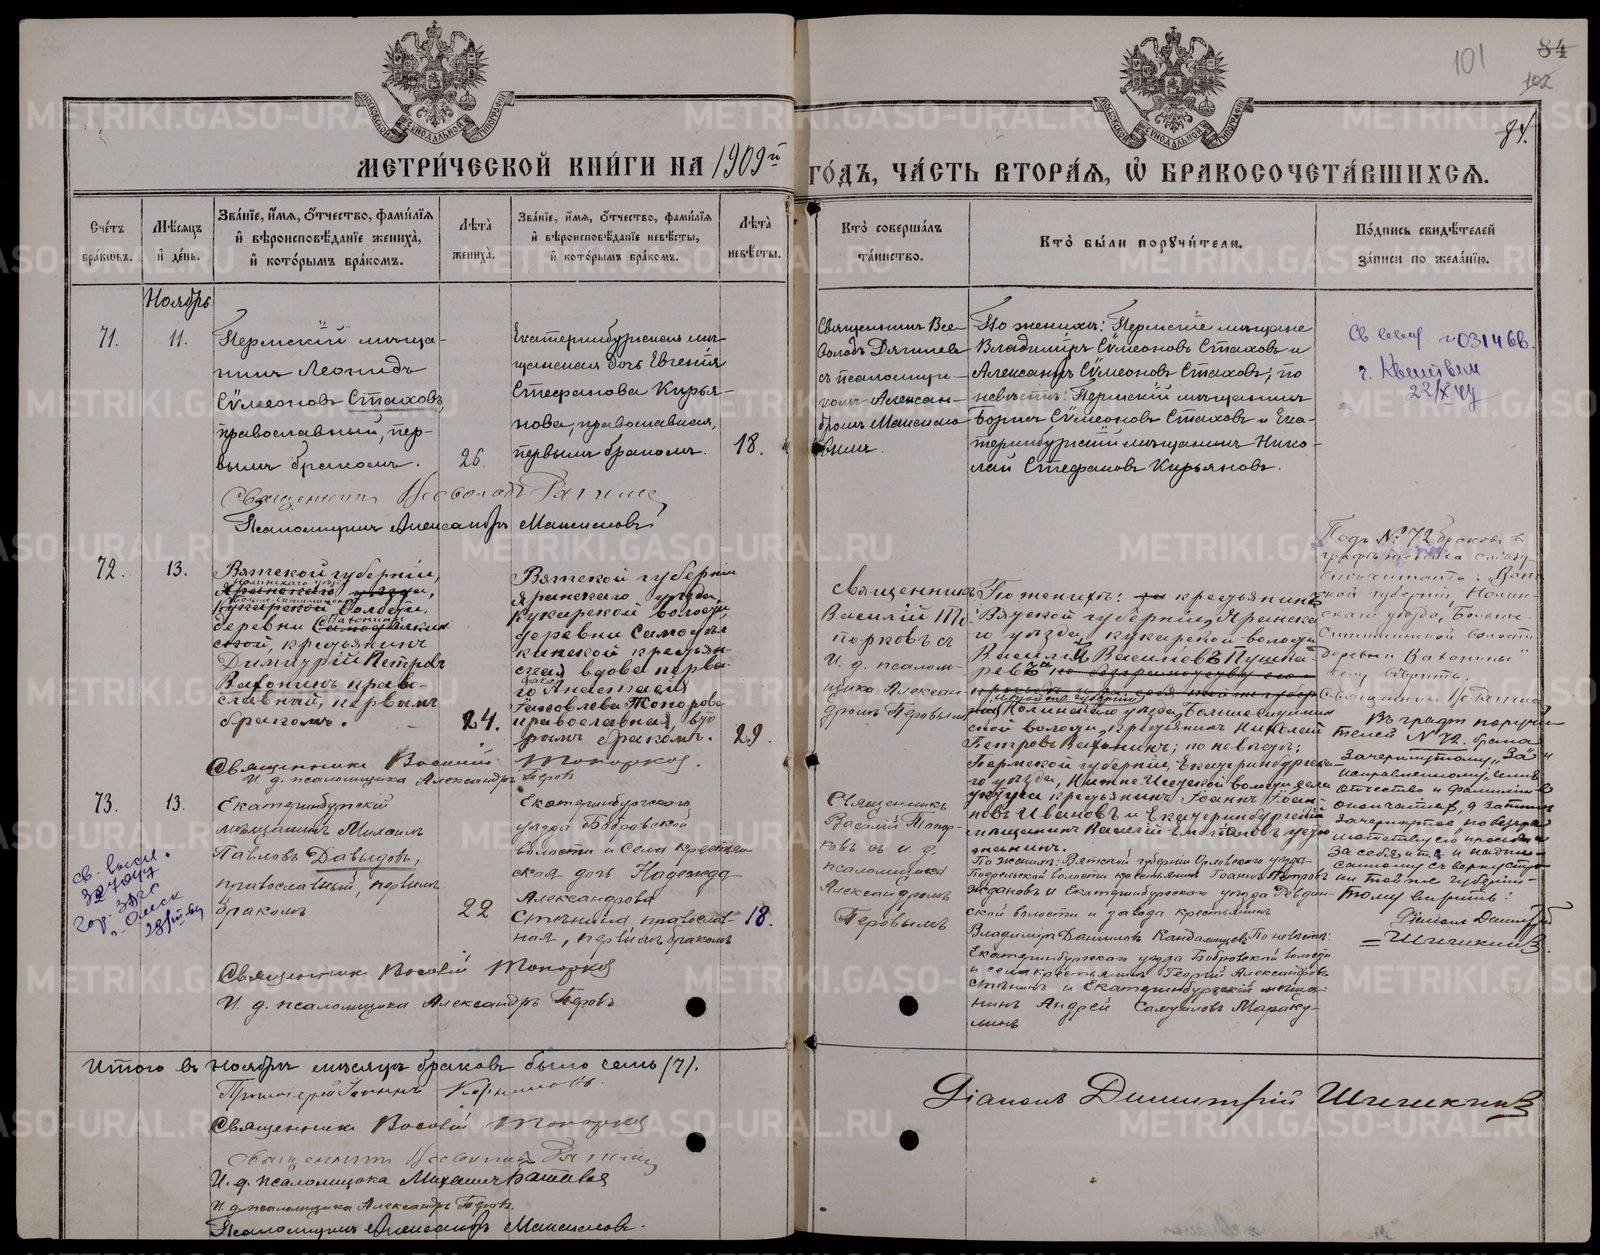 101
84
102
84.
МОСКОВСКОЙ СѴНОДАЛЬНОЙ ТИПОГРАФИИ
МОСКОВСКОЙ СѴНОДАЛЬНОЙ ТИПОГРАФИИ
МЕТРИ́ЧЕСКОЙ КНИ́ГИ НА 1909й ГО́ДЪ, ЧА́СТЬ ВТОРА́Я, Ѡ БРАКОСОЧЕТА́ВШИХСЯ.
Сче́тъ бра́кѡвъ.
Мѣ́сяцъ и де́нь.
Зва́нїе, и́мя, ѻ́тчество, фами́лїя и҆ вѣроисповѣ́данїе жениха̀, и҆ кото́рымъ бра́комъ.
Лѣта̀ жениха̀.
Зва́нїе, и́мя, ѻ́тчество, фами́лїя и҆ вѣроисповѣ́данїе невѣ́сты, и҆ кото́рымъ бра́комъ.
Лѣта̀ невѣ́сты.
Кто̀ соверша́лъ та́инство.
Кто̀ бы́ли порꙋчи́тели.
По́дпись свидѣ́телей за́писи по жела́нїю.
Ноябрь
71.
11.
Пермскій мѣща-
нинъ Леонидъ
Сѵмеоновъ Стаховъ,
православный, пер-
вымъ бракомъ.
26.
Екатеринбургская мѣ-
щанская дочь Евгенія
Стефанова Кирья-
нова, православная,
первымъ бракомъ.
18.
Священникъ Все-
володъ Дягилевъ
съ псаломщи-
комъ Алексан-
дромъ Максимо-
вымъ.
По женихѣ: Пермскіе мѣщане
Владиміръ Сѵмеоновъ Стаховъ и
Александръ Сѵмеоновъ Стаховъ; по
невѣстѣ: Пермскій мѣщанинъ
Борисъ Сѵмеоновъ Стаховъ и Ека-
теринбургскій мѣщанинъ Нико-
лай Стефановъ Кирьяновъ.
Священникъ Всеволодъ Дягилевъ
Псаломщикъ Александръ Максимовъ
72.
13.
Вятской губерніи,
Нолинскаго уѣзда
Яранскаго уѣзда,
Кукарской волости,
деревни Ватонины
кской, крестьянинъ
Димитрій Петровъ
Ватонинъ право-
славный, первымъ
бракомъ.
24.
Вятской губерніи
Яранскаго уѣзда,
Кукарской волости,
деревни Самодѣл
кинской крестьян-
ская вдова перва-
го брака Анастасія
Яковлева Топорова
православная, вто
рымъ бракомъ.
29.
Священникъ
Василій То-
порковъ съ
И. д. псалом-
щика Алексан-
дромъ Перовымъ
По женихѣ: крестьянинъ
Вятской губерніи, Яранска-
го уѣзда, Кукарской волости
Василій Василіевъ Пушка-
ревъ
Нолинскаго уѣзда, Больше-Ситмин
ской волости, крестьянинъ Николай
Петровъ Ватонинъ; по невѣстѣ:
Пермской губерніи, Екатеринбургска-
го уѣзда, Нижне-Исетской волости
крестьянинъ Іоаннъ Іоан-
новъ Ивановъ и Екатеринбургскій
мѣщанинъ Василій
Подъ № 72 браковъ въ
графѣ
считать: „Вят-
ской губерніи, Нолин-
скаго уѣзда, Больше-
Ситминской волости
деревни Ватонины"
Въ графѣ поручи-
телей № 72 брака
зачеркнутому „За" и
исправленному
отчество и фамилію
зачеркнутое
вѣрить.
Діаконъ Димитрій
Шишкинъ.
Священникъ Василій Топорковъ.
И. д. псаломщика Александръ Перовъ
73.
13.
Екатеринбургскій
мѣщанинъ Михаилъ
Павловъ Давыдовъ,
православный, первымъ
бракомъ
22
Екатеринбургскаго
уѣзда Бобровской
волости и села крестьян
ская дочь Надежда
Александрова
Стѣнина, православ-
ная, первымъ бракомъ
18.
Священникъ
Василій Топор-
ковъ съ и. д.
псаломщика
Александромъ
Перовымъ
По женихѣ: Вятской губерніи Орловскаго уѣзда
Подрельской волости крестьянинъ Іоаннъ Петровъ
Ждановъ и Екатеринбургскаго уѣзда Ревдин
ской волости и завода крестьянинъ
Владиміръ Даниловъ Кандалинцевъ. По невѣстѣ:
Екатеринбургскаго уѣзда Бобровской волости
и села крестьянинъ Георгій Александровъ
Стѣнинъ и Екатеринбургскій мѣща-
нинъ Андрей Самуиловъ Мараку-
линъ
Священникъ Василій Топорковъ
И. д. псаломщика Александръ Перовъ
Итого въ Ноябрѣ мѣсяцѣ браковъ было семь (7).
Протоіерей Іоаннъ
Священникъ Василій Топорковъ
Священникъ Всеволодъ Дягилевъ
И. д. псаломщика Михаилъ
И. д. псаломщика Александръ Перовъ.
Псаломщикъ Александръ Максимовъ.
Діаконъ Димитрій Шишкинъ
METRIKI.GASO-URAL.RU